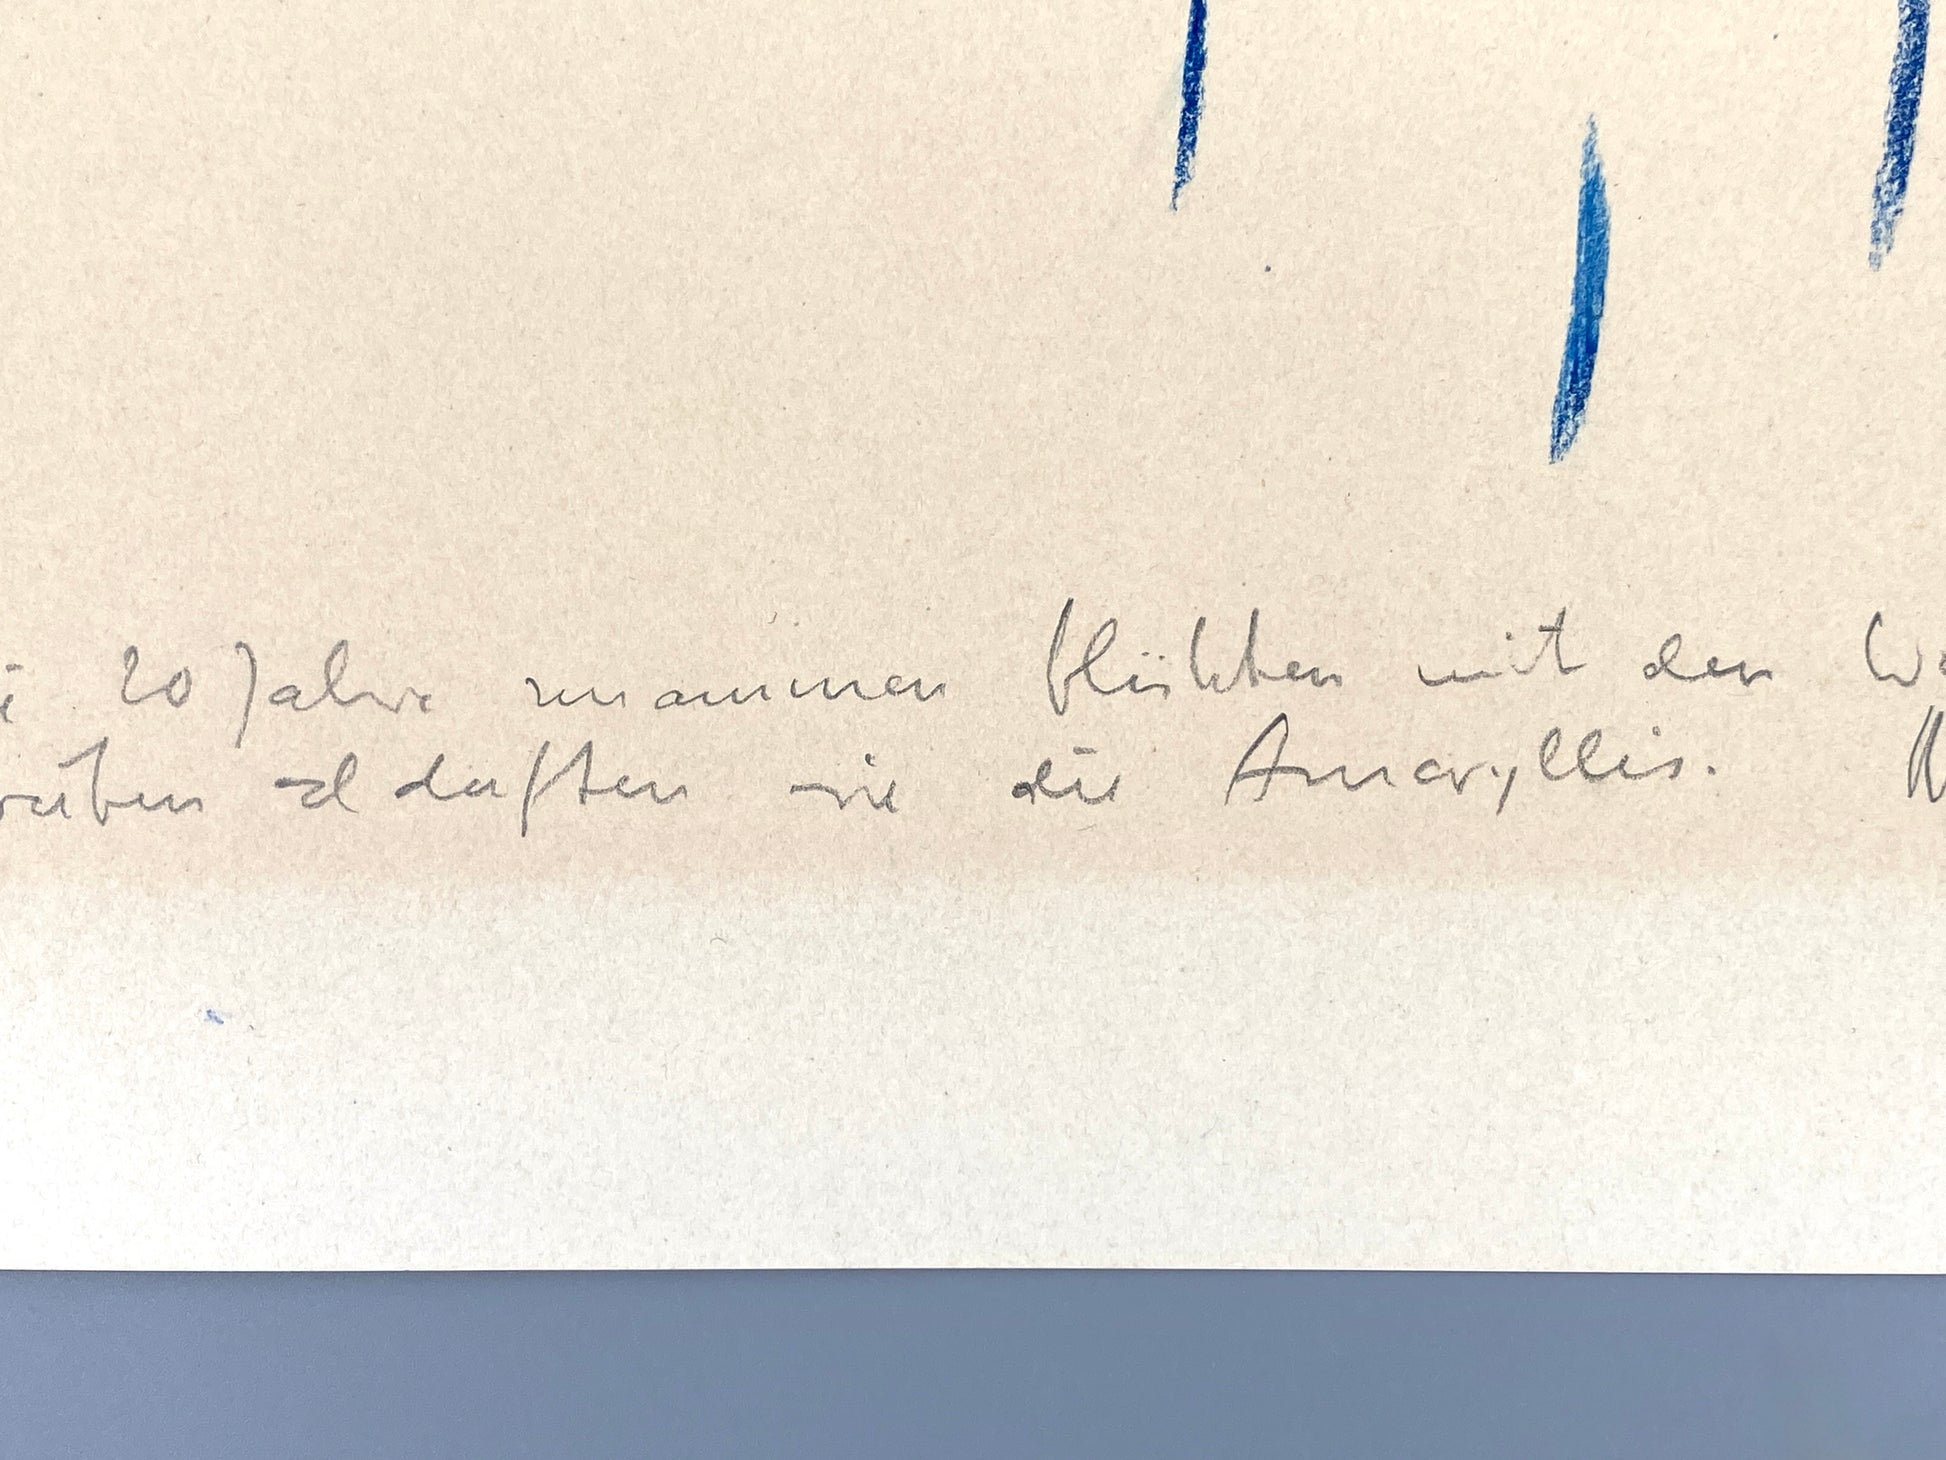 20 Jahre zusammen blühten mit den
duften wie die Amaryllis.